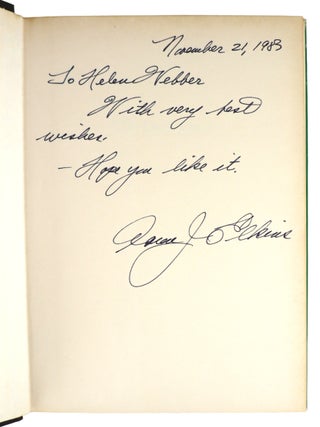 November 21, 1983
To Helen Webber
With very best
wishes.
- Hope you like it.
J. Elkins